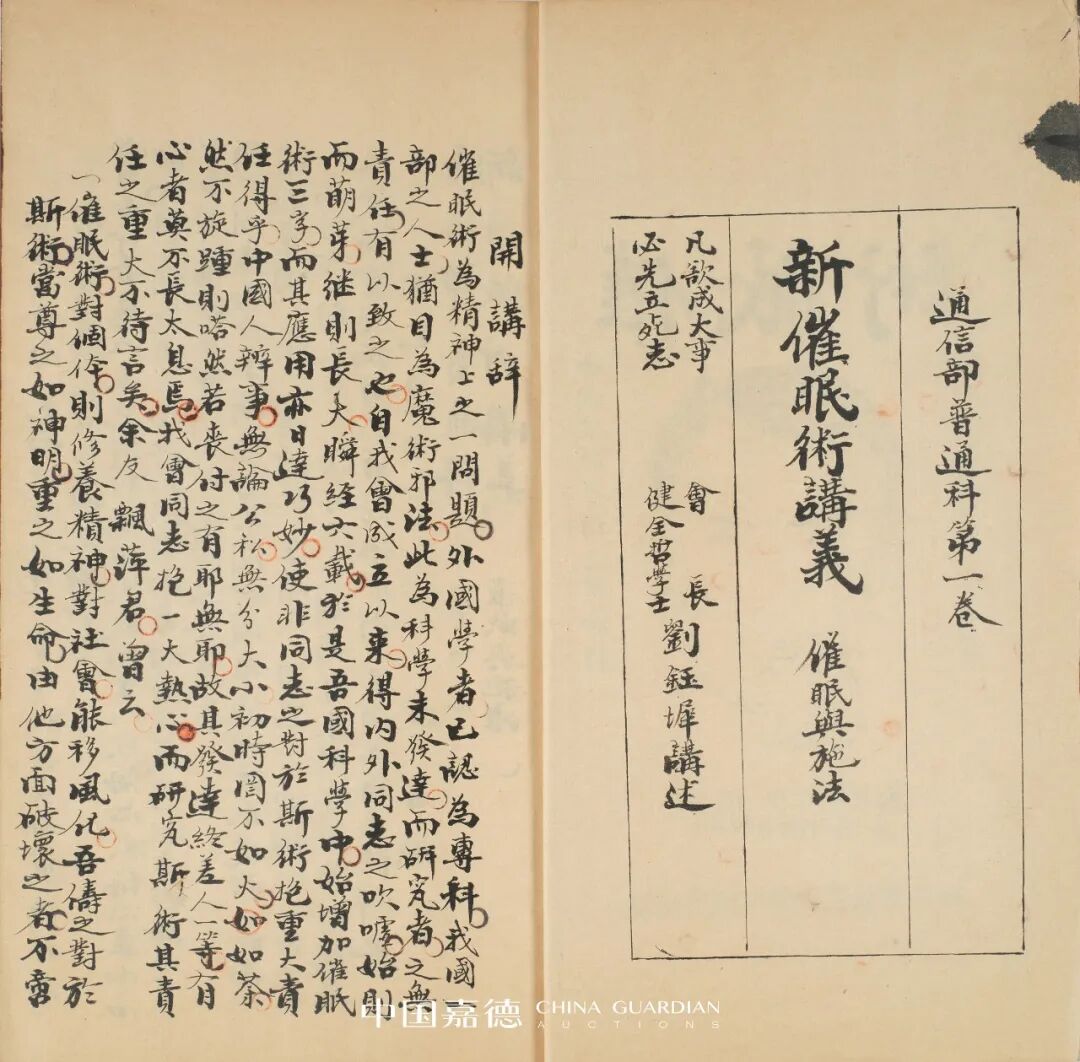 通信部普通科第一卷
新催眠術講義 催眠與施法
凡欲成大事
必先立死志
會長
健全哲學士 劉鈺墀講述
開講辞
催眠術為精神上之一問題外國學者已認為專科我國一
部之人士猶目為魔術邪法此為科學未發達而研究者之無
責任有以致之也自我會成立以來得內外同志之吹噓始則
而萌芽继則長夭瞬経六載於是吾國科學中始增加催眠
術三字而其應用亦日達巧妙使非同志之對於斯術抱重大責
任得乎中國人辨事無論公私無分大小初時罔不如火如如荼
然不旋踵則嗒然若喪付之有耶無耶故其發達終差人一等有
心者莫不長太息焉我會同志抱一大熱心而研究斯術其責
任之重大不待言矣余友飄萍君曽云
一催眠術對個体則修養精神對社會能移風化吾儔之對於
斯術當尊之如神明重之如生命由他方面破壞之者不啻
中国嘉德 CHINA GUARDIAN
AUCTIONS